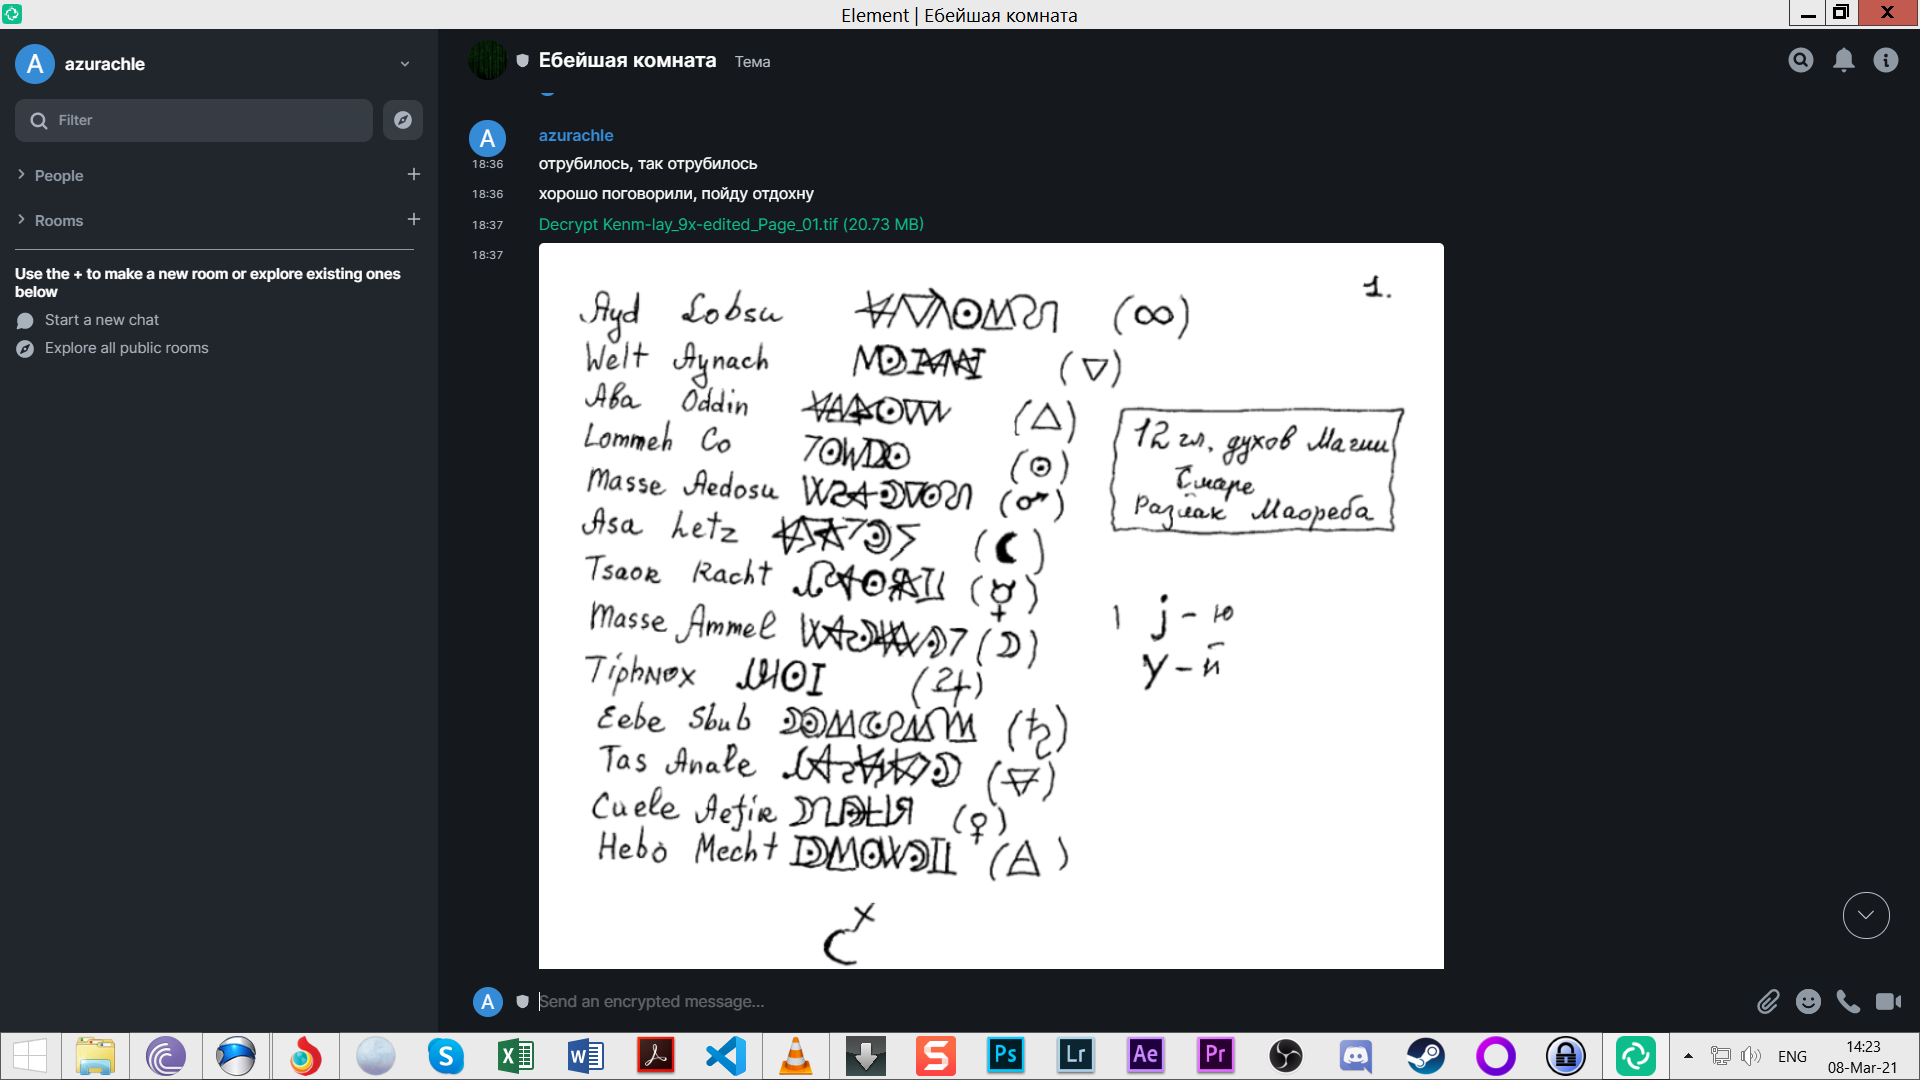 Element | Ебейшая комната
A azurachle
Filter
People
Rooms
Use the + to make a new room or explore existing ones below
Start a new chat
Explore all public rooms
Ебейшая комната Тема
A azurachle
18:36 отрубилось, так отрубилось
18:36 хорошо поговорили, пойду отдохну
18:37 Decrypt Kenm-lay_9x-edited_Page_01.tif (20.73 MB)
18:37
1.
Ayd Lobsu (∞)
Welt Aynach (▽)
Aba Oddin (△)
Lommeh Co (☉)
Masse Aedosu (♂)
Asa Letz (☾)
Tsaok Racht (☿)
Masse Ammel (☽)
Tiphnox (♃)
Eebe Sbub (♄)
Tas Anale
Cuele Aefir (♀)
Hebo Mecht
12 гл. духов Магии
Смаре
Разлак Маореба
j - ю
y - й
A Send an encrypted message...
ENG
14:23
08-Mar-21